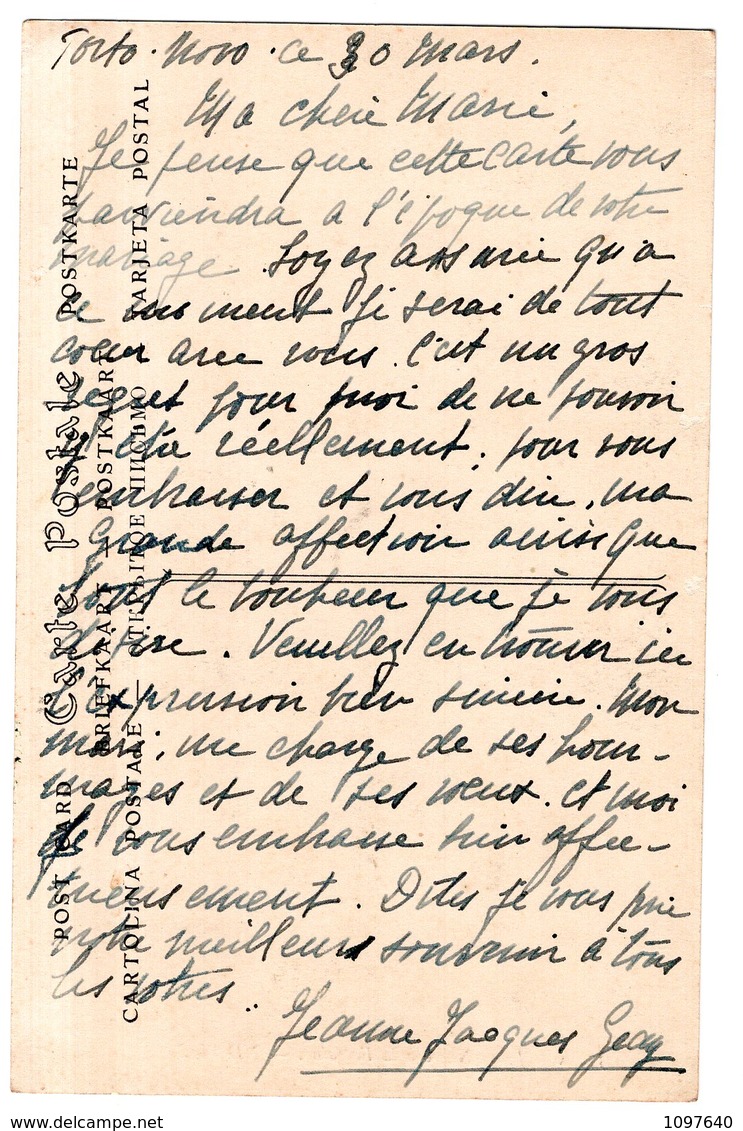 Porto-Novo ce 30 Mars.
Ma chère Marie,
Je pense que cette carte vous
parviendra a l'époque de votre
mariage. Soyez assurée qu'a
ce moment je serai de tout
cœur avec vous. C'est un gros
regret pour moi de ne pouvoir
y être réellement, pour vous
embrasser et vous dire, ma
grande affection ainsi que
tout le bonheur que je vous
désire. Veuillez en trouver ici
l'expression bien sincère. Mon
mari, me charge de ses hom-
mages et de ses vœux. Et moi
je vous embrasse bien affec-
tueusement. Dites je vous prie
notre meilleur souvenir à tous
les vôtres
Jeanne Jacques
Carte Postale
POST CARD — BRIEFKAART — POSTKAART — POSTKARTE
CARTOLINA POSTALE — ОТКРЫТОЕ ПИСЬМО — TARJETA POSTAL
1097640